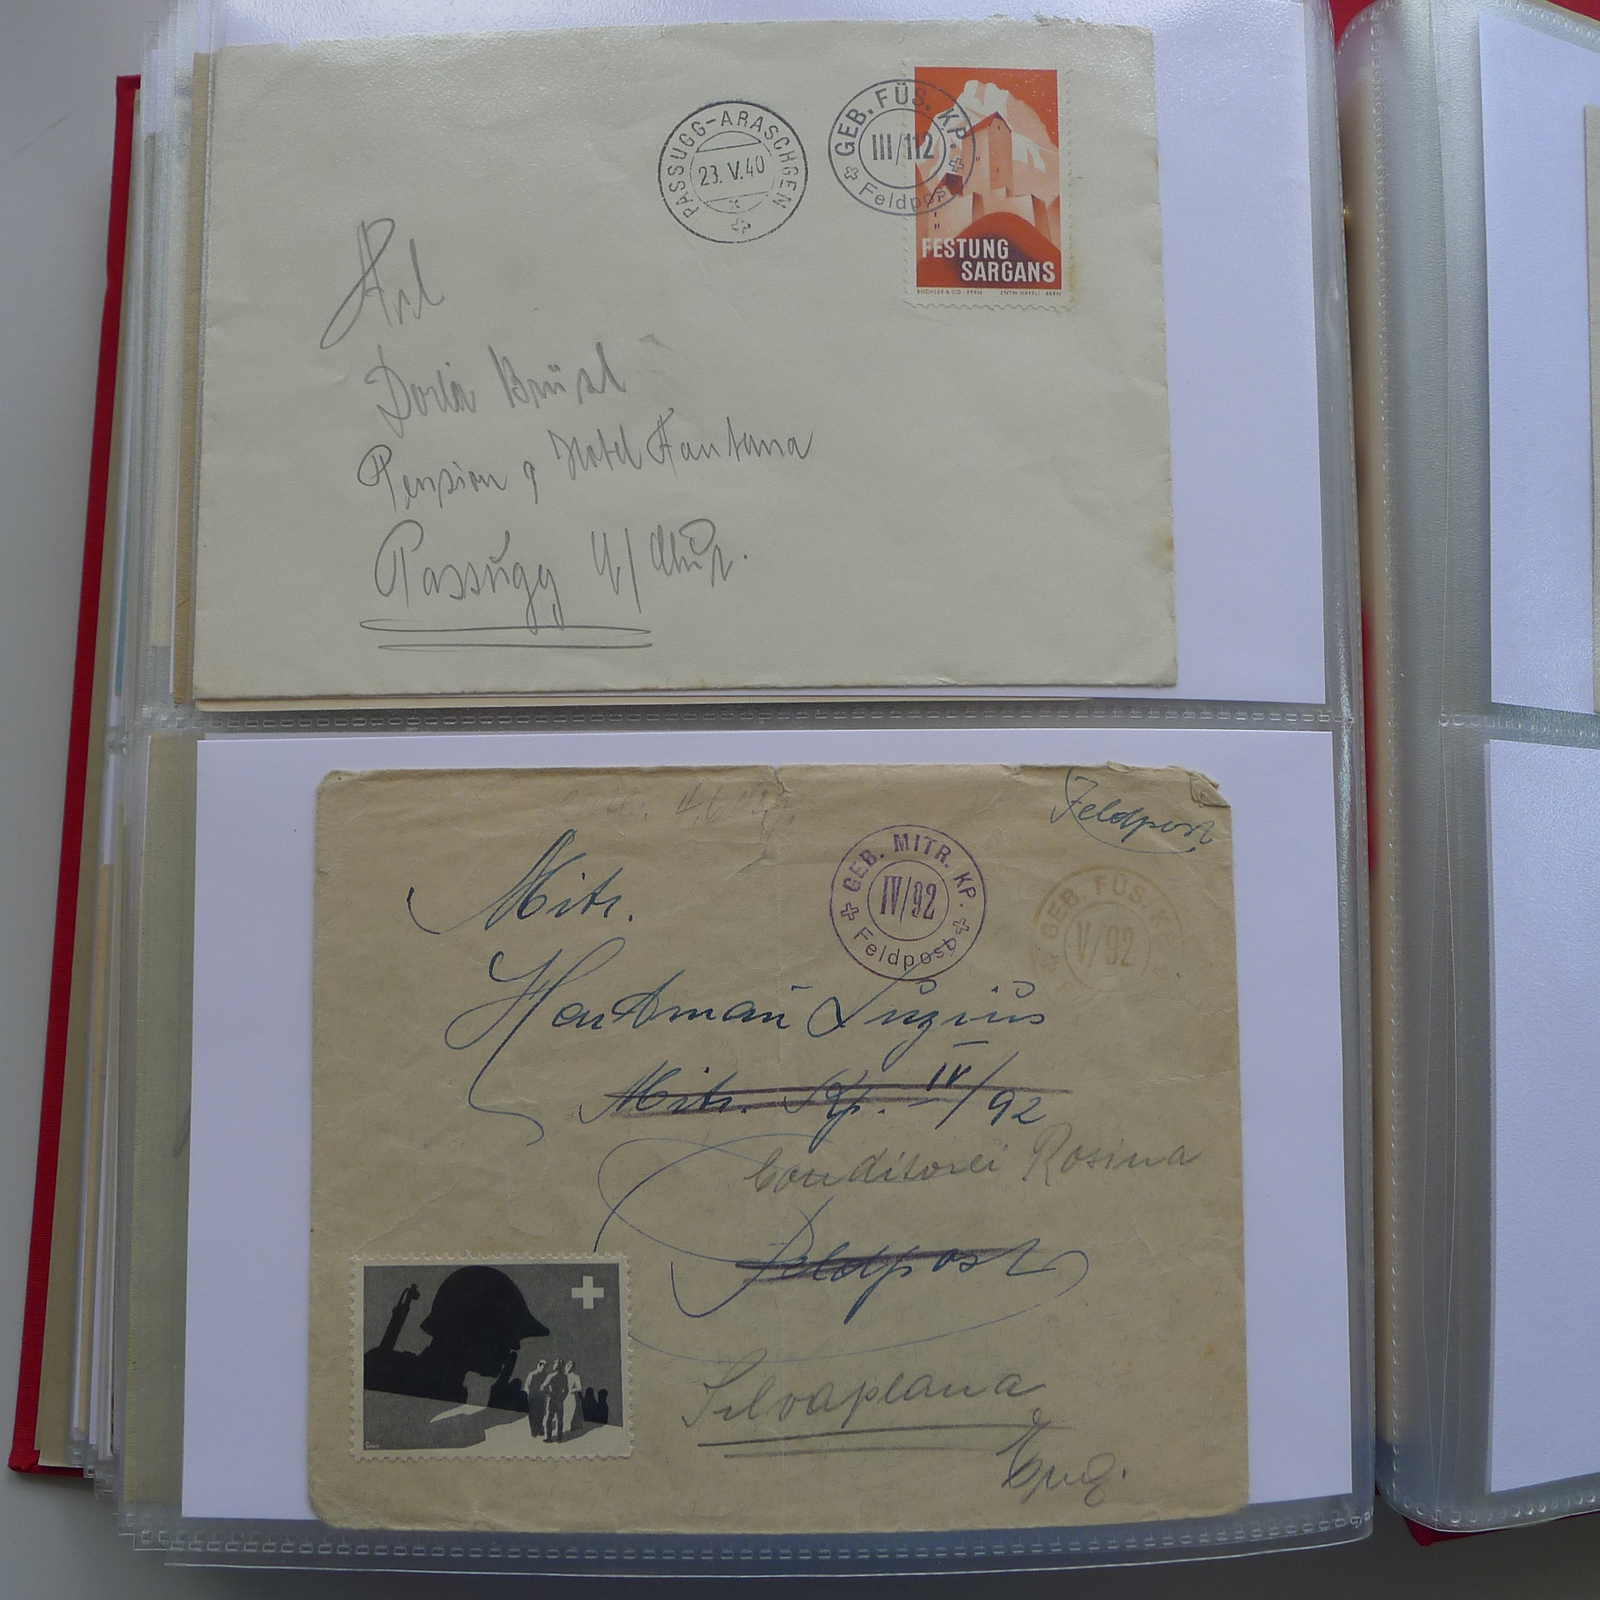 PASSUGG-ARASCHGEN
23. V. 40
GEB. FÜS. KP.
III/112
Feldpost
FESTUNG
SARGANS
Pension Hotel Fontana
Passugg
Feldpost
GEB. MITR. KP.
IV/92
Feldpost
GEB. FÜS. K
V/92
Mitr.
Hartmann Luzius
Mitr. Kp. IV/92
Conditorei Rosina
Feldpost
Silvaplana
Eng.